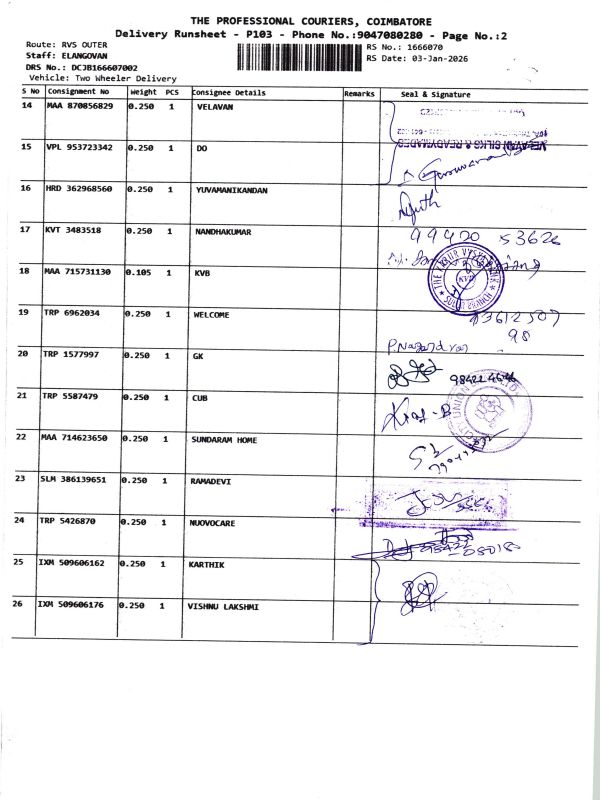 THE PROFESSIONAL COURIERS, COIMBATORE
Delivery Runsheet - P103 - Phone No.:9047080280 - Page No.:2
Route: RVS OUTER
RS No.: 1666070
Staff: ELANGOVAN
RS Date: 03-Jan-2026
DRS No.: DCJB166607002
Vehicle: Two Wheeler Delivery
S No Consignment No Weight PCS Consignee Details Remarks Seal & Signature
14 MAA 870856829 0.250 1 VELAVAN
15 VPL 953723342 0.250 1 DO
VELAVAN SILKS & READYMADES
16 HRD 362968560 0.250 1 YUVAMANIKANDAN
17 KVT 3483518 0.250 1 NANDHAKUMAR
99420 53626
18 MAA 715731130 0.105 1 KVB
THE KARUR VYSYA BANK
SULUR BRANCH
19 TRP 6962034 0.250 1 WELCOME
93612507
98
P.Nagendran
20 TRP 1577997 0.250 1 GK
21 TRP 5587479 0.250 1 CUB
22 MAA 714623650 0.250 1 SUNDARAM HOME
23 SLM 386139651 0.250 1 RAMADEVI
24 TRP 5426870 0.250 1 NUOVOCARE
25 IXM 509606162 0.250 1 KARTHIK
26 IXM 509606176 0.250 1 VISHNU LAKSHMI